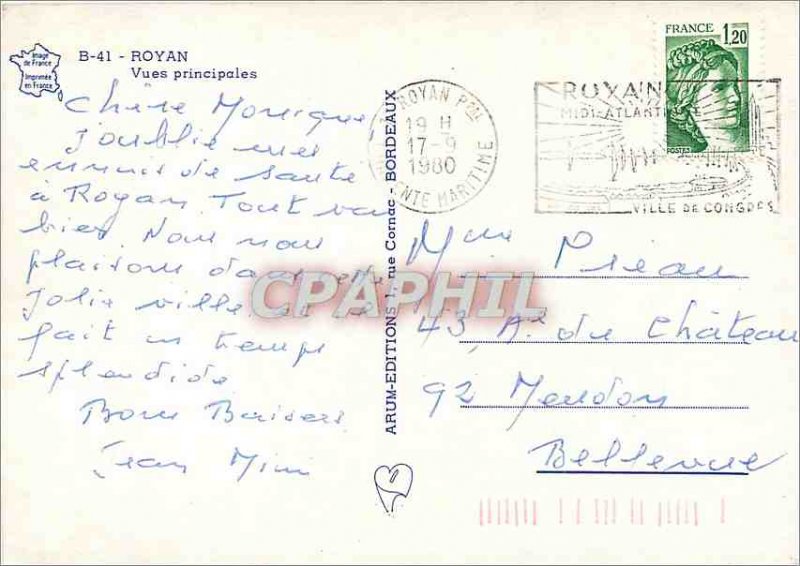 Image
de France
Imprimée
en France
B-41 - ROYAN
Vues principales
Chère Monique,
J'oublie mes
ennuis de santé
à Royan Tout va
bien. Nous nous
plaisons dans cette
Jolie ville et il
fait un temps
splendide
Bons Baisers
Jean Mimi
ARUM-EDITIONS 1, rue Cornac - BORDEAUX
ROYAN Pal
19 H
17-9
1980
NTE MARITIME
ROYAN
MIDI-ATLANTI
VILLE DE CONGRES
FRANCE 1,20
POSTES
CPAPHIL
Mme
43, Ae du Château
92 Meudon
Bellevue